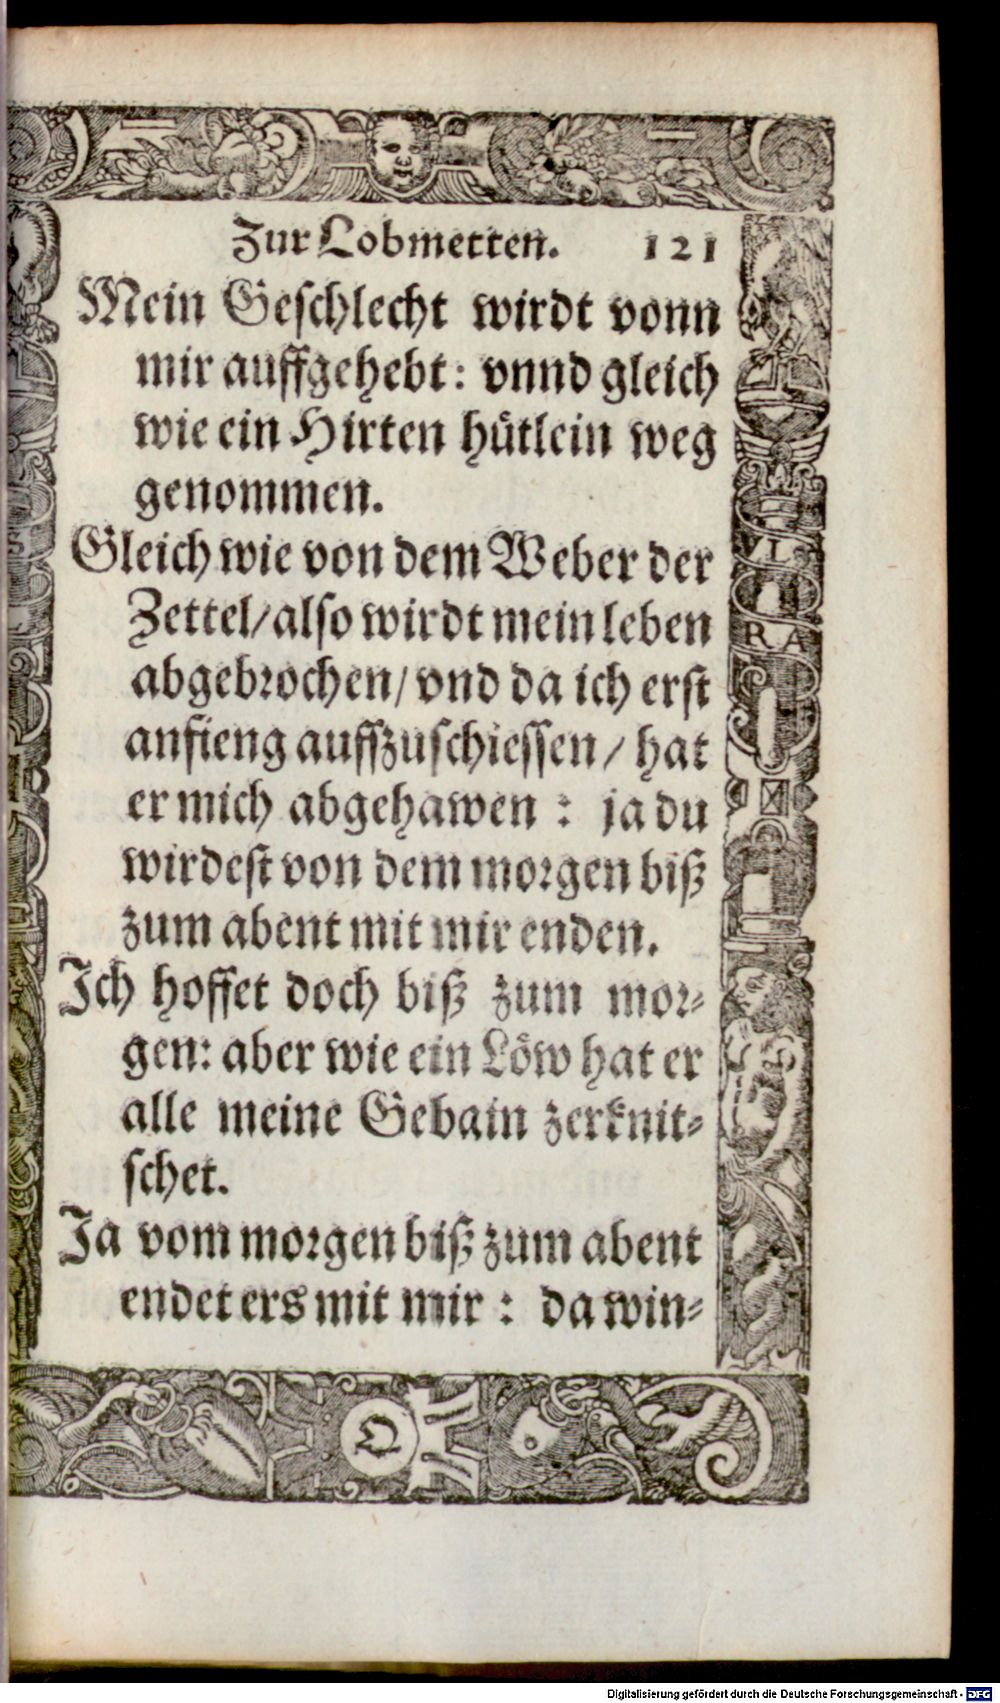 Zur Lobmetten. 121
Mein Geschlecht wirdt vonn
mir auffgehebt: vnnd gleich
wie ein Hirten hütlein weg
genommen.
Gleich wie von dem Weber der
Zettel/ also wirdt mein leben
abgebrochen/ vnd da ich erst
anfieng auffzuschiessen/ hat
er mich abgehawen : ja du
wirdest von dem morgen biß
zum abent mit mir enden.
Ich hoffet doch biß zum mor-
gen: aber wie ein Löw hat er
alle meine Gebain zerknit-
schet.
Ja vom morgen biß zum abent
endet ers mit mir : da win-
VL
RA
Digitalisierung gefördert durch die Deutsche Forschungsgemeinschaft - DFG